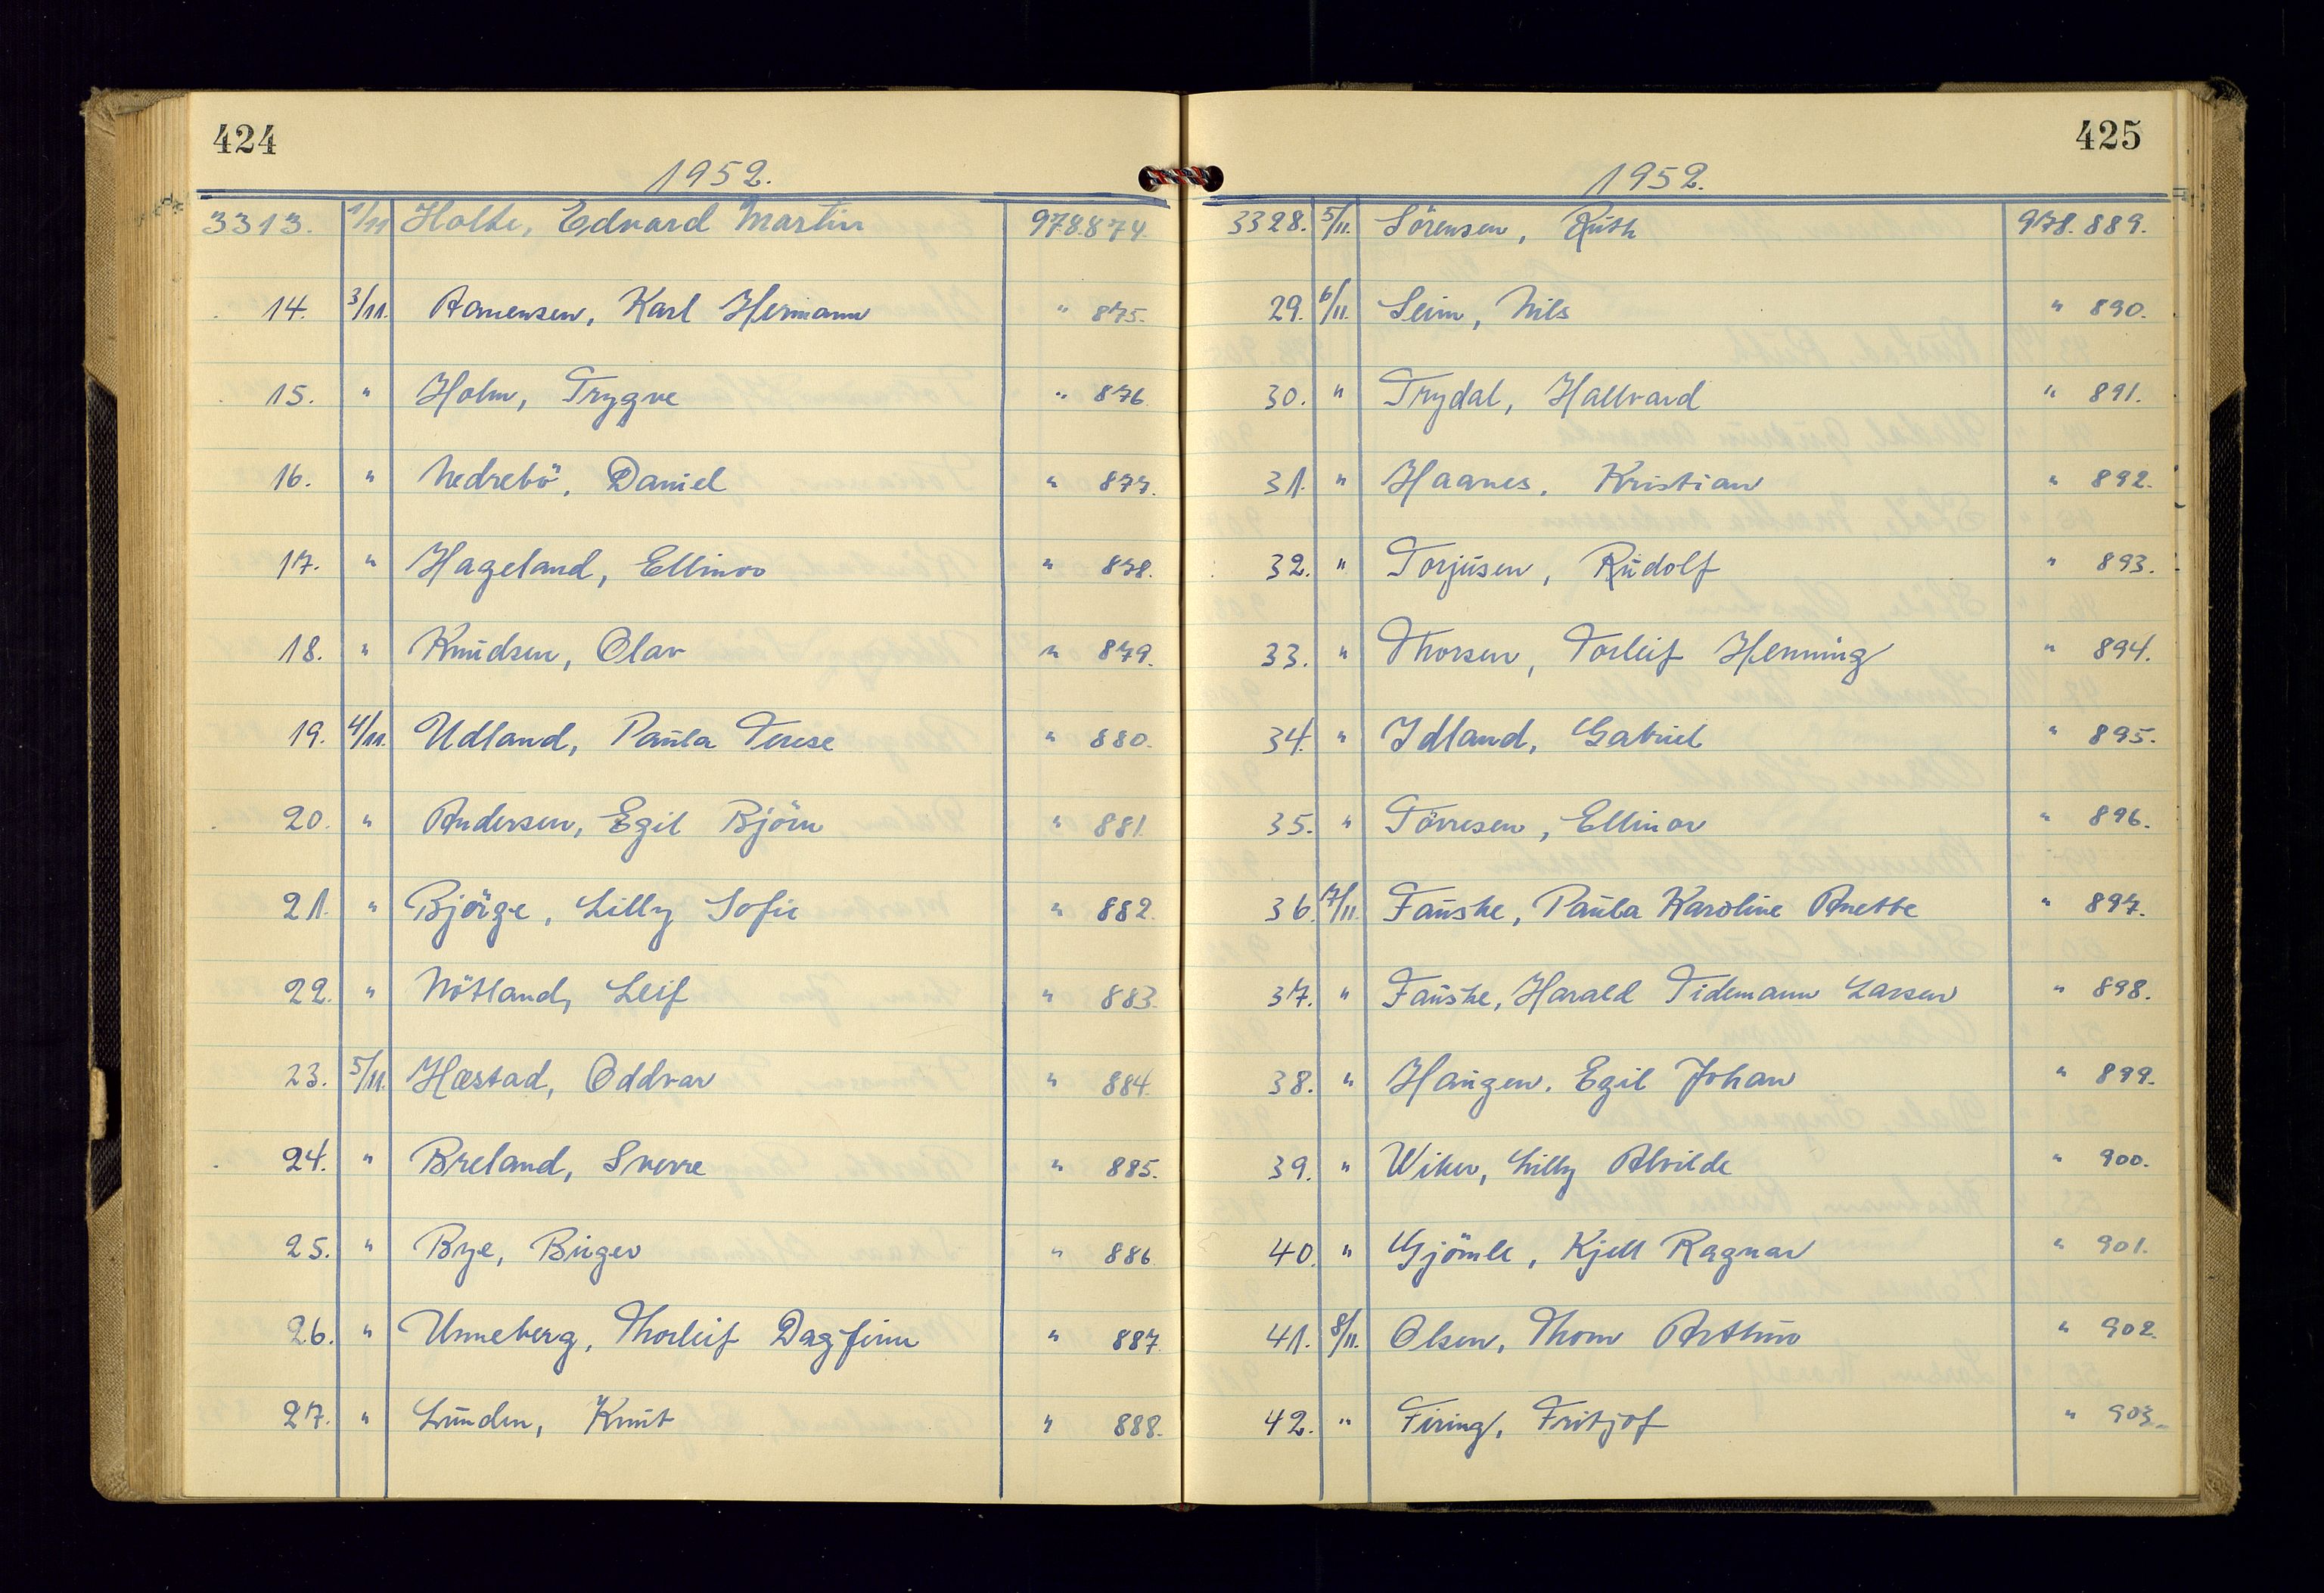 424
1952.
3313. 1/11 Holte, Edvard Martin 978.874.
14. 3/11. Aamensen, Karl Hermann " 875.
15. " Holm, Trygve " 876.
16. " Nedrebö, Daniel " 877.
17. " Hageland, Ellinor " 878.
18. " Knudsen, Olav " 879.
19. 4/11. Udland, Paula Terese " 880.
20. " Andersen, Egil Björn " 881.
21. " Björge, Lilly Sofie " 882.
22. " Nötland, Leif " 883.
23. 5/11. Hæstad, Oddvar " 884.
24. " Breland, Sverre " 885.
25. " Bye, Birger " 886.
26. " Unneberg, Thorleif Dagfinn " 887.
27. " Lunden, Knut " 888.
425
1952.
3328. 5/11. Sörensen, Ruth 978.889.
29. 6/11. Seim, Nils " 890.
30. " Trydal, Hallvard " 891.
31. " Haanes, Kristian " 892.
32. " Torjusen, Rudolf " 893.
33. " Thorsen, Torleif Henning " 894.
34. " Idland, Gabriel " 895.
35. " Törresen, Ellinor " 896.
36. 7/11. Fauske, Paula Karoline Anette " 897.
37. " Fauske, Harald Tidemann Larsen " 898.
38. " Haugen, Egil Johan " 899.
39. " Wiker, Lilly Alvilde " 900.
40. " Gjömle, Kjell Ragnar " 901.
41. 8/11. Olsen, Thom Arthur " 902.
42. " Firing, Fritjof " 903.